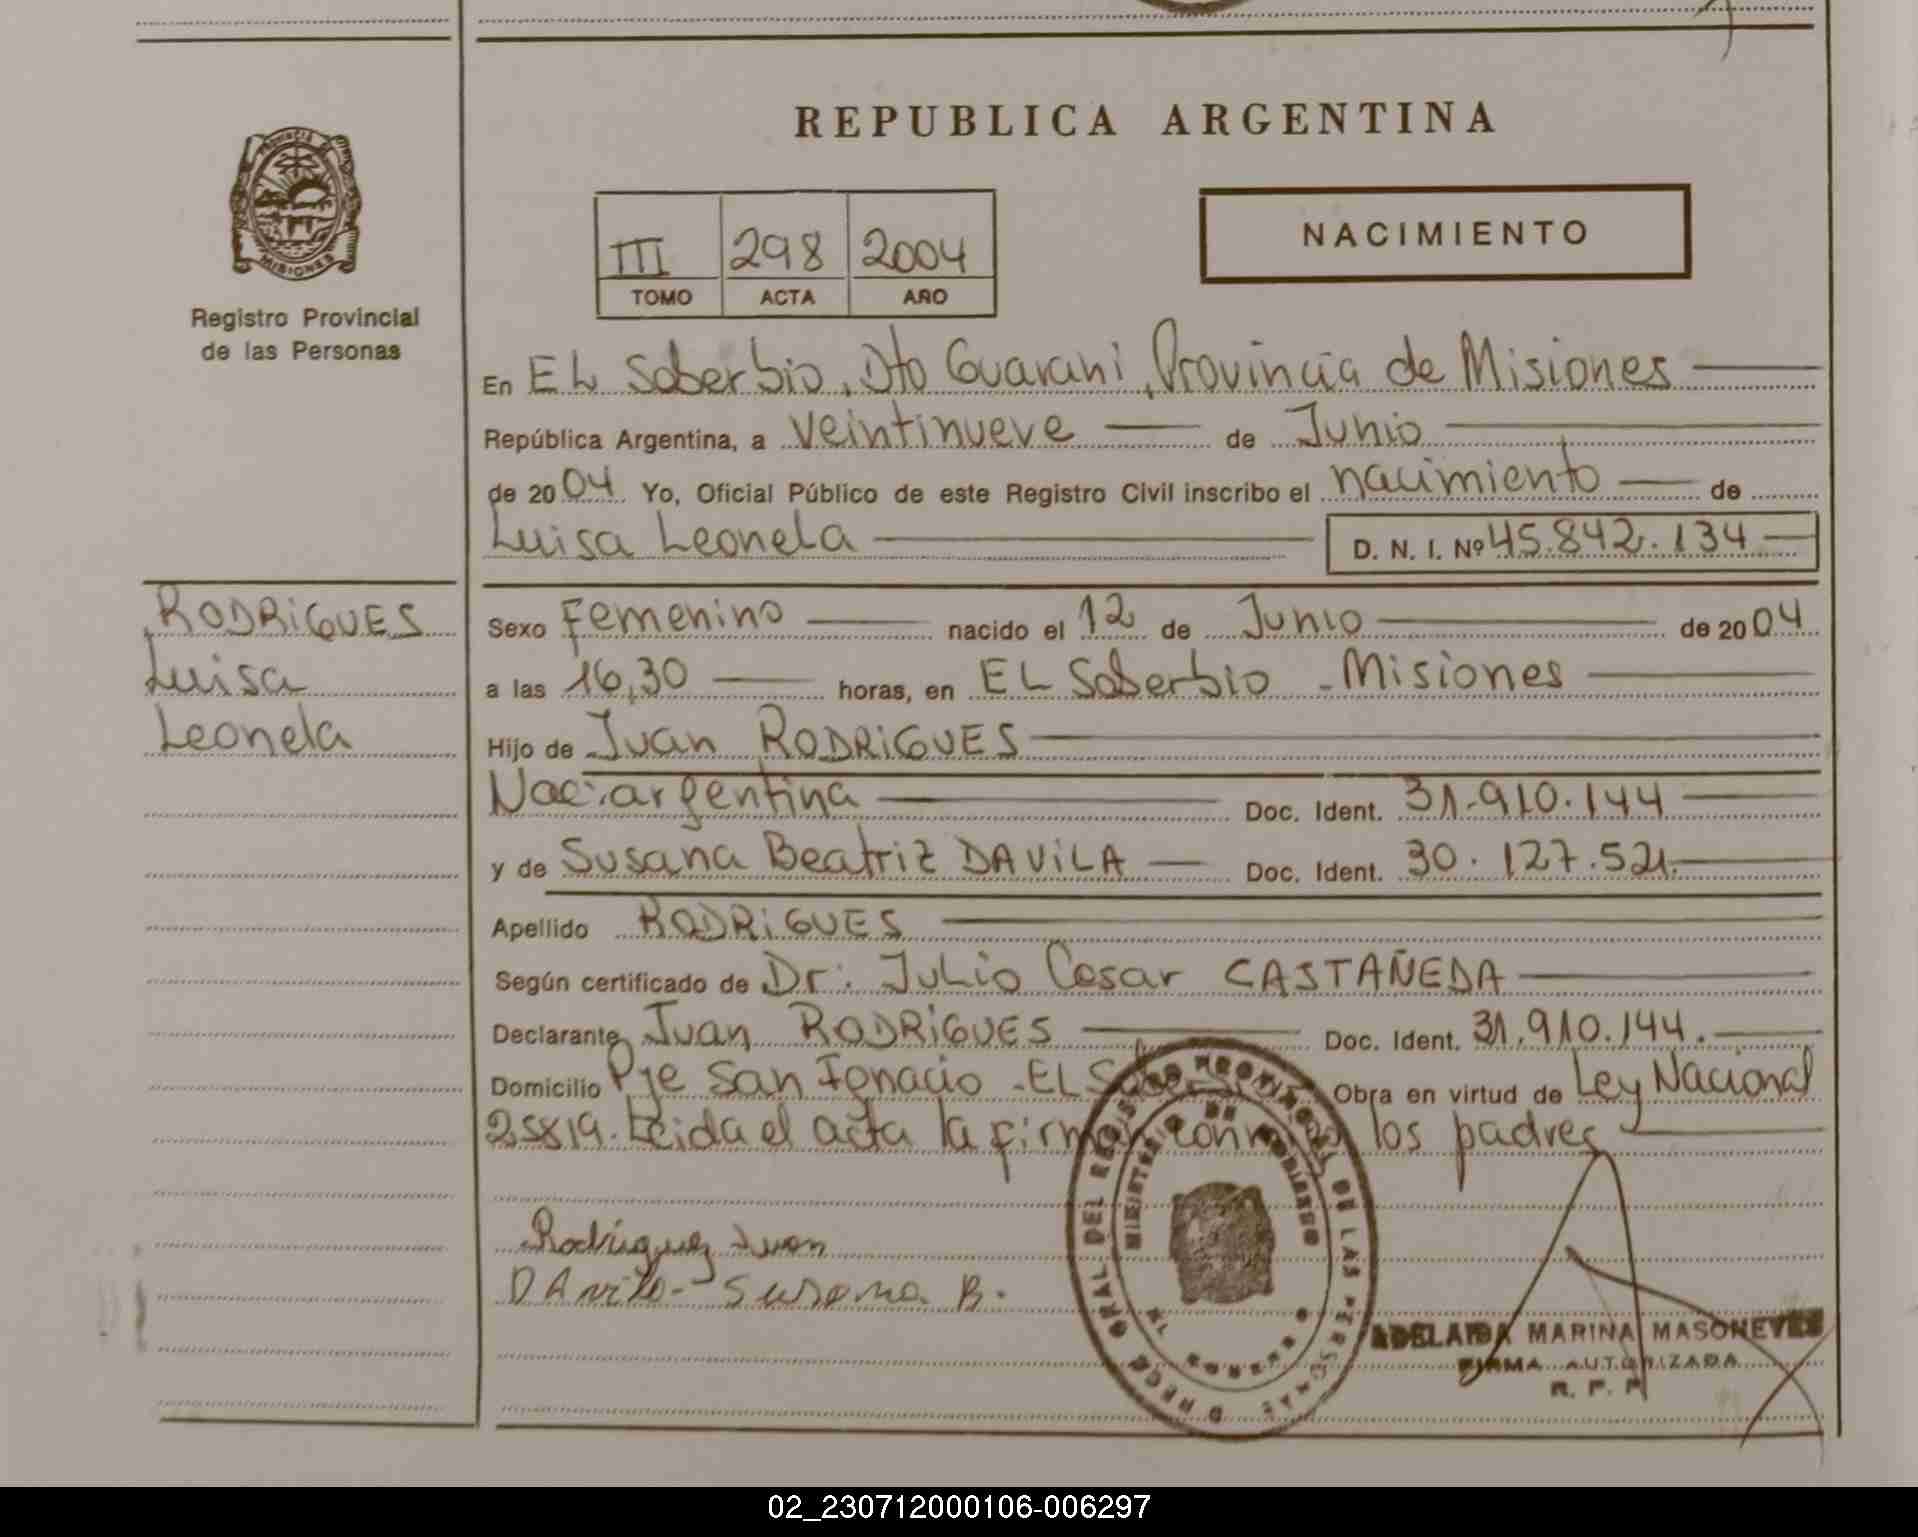 REPUBLICA ARGENTINA
PROVINCIA DE MISIONES
Registro Provincial
de las Personas
III 298 2004
TOMO ACTA AÑO
NACIMIENTO
En EL Soberbio, Dto Guarani, Provincia de Misiones
República Argentina, a veintinueve de Junio
de 2004 Yo, Oficial Público de este Registro Civil inscribo el nacimiento de
Luisa Leonela D. N. I. Nº 45.842.134
RODRIGUES
Luisa
Leonela
Sexo Femenino nacido el 12 de Junio de 2004
a las 16,30 horas, en EL Soberbio - Misiones
Hijo de Juan RODRIGUES
Nac. argentina Doc. Ident. 31.910.144
y de Susana Beatriz DAVILA Doc. Ident. 30.127.521
Apellido RODRIGUES
Según certificado de Dr. Julio Cesar CASTAÑEDA
Declarante Juan RODRIGUES Doc. Ident. 31.910.144.
Domicilio Pje San Ignacio - EL Obra en virtud de Ley Nacional
25819. Leida el acta la firman los padres
Rodriguez Juan
DAvila - Susana B.
DEL REGISTRO PROVINCIAL DE LAS PERSONAS
MINISTERIO DE GOBIERNO
ADELAIDA MARINA MASONEVES
FIRMA AUTORIZADA
R. P. P.
02_230712000106-006297